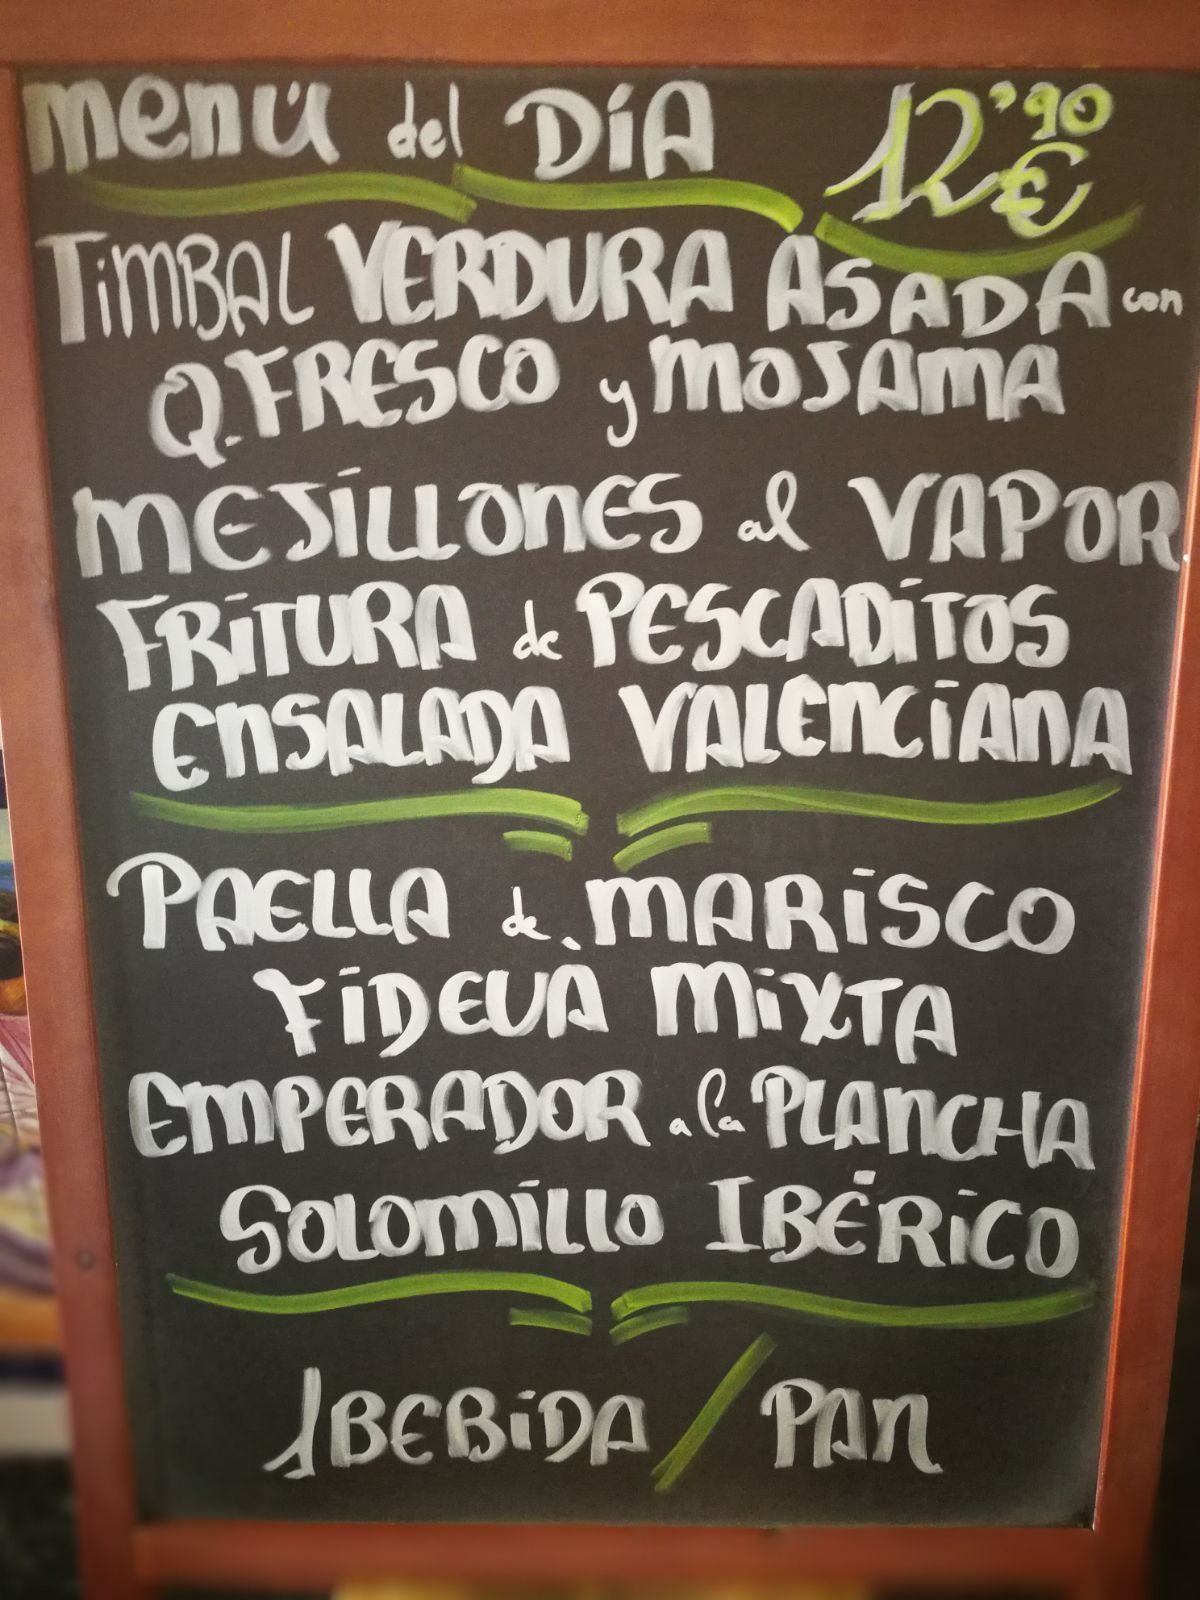 Menú del DÍA 12'90 €
TIMBAL VERDURA ASADA con
Q. FRESCO y MOJAMA
MEJILLONES al VAPOR
FRITURA de PESCADITOS
ENSALADA VALENCIANA
PAELLA de MARISCO
FIDEUÀ MIXTA
EMPERADOR a la PLANCHA
SOLOMILLO IBÉRICO
1 BEBIDA / PAN